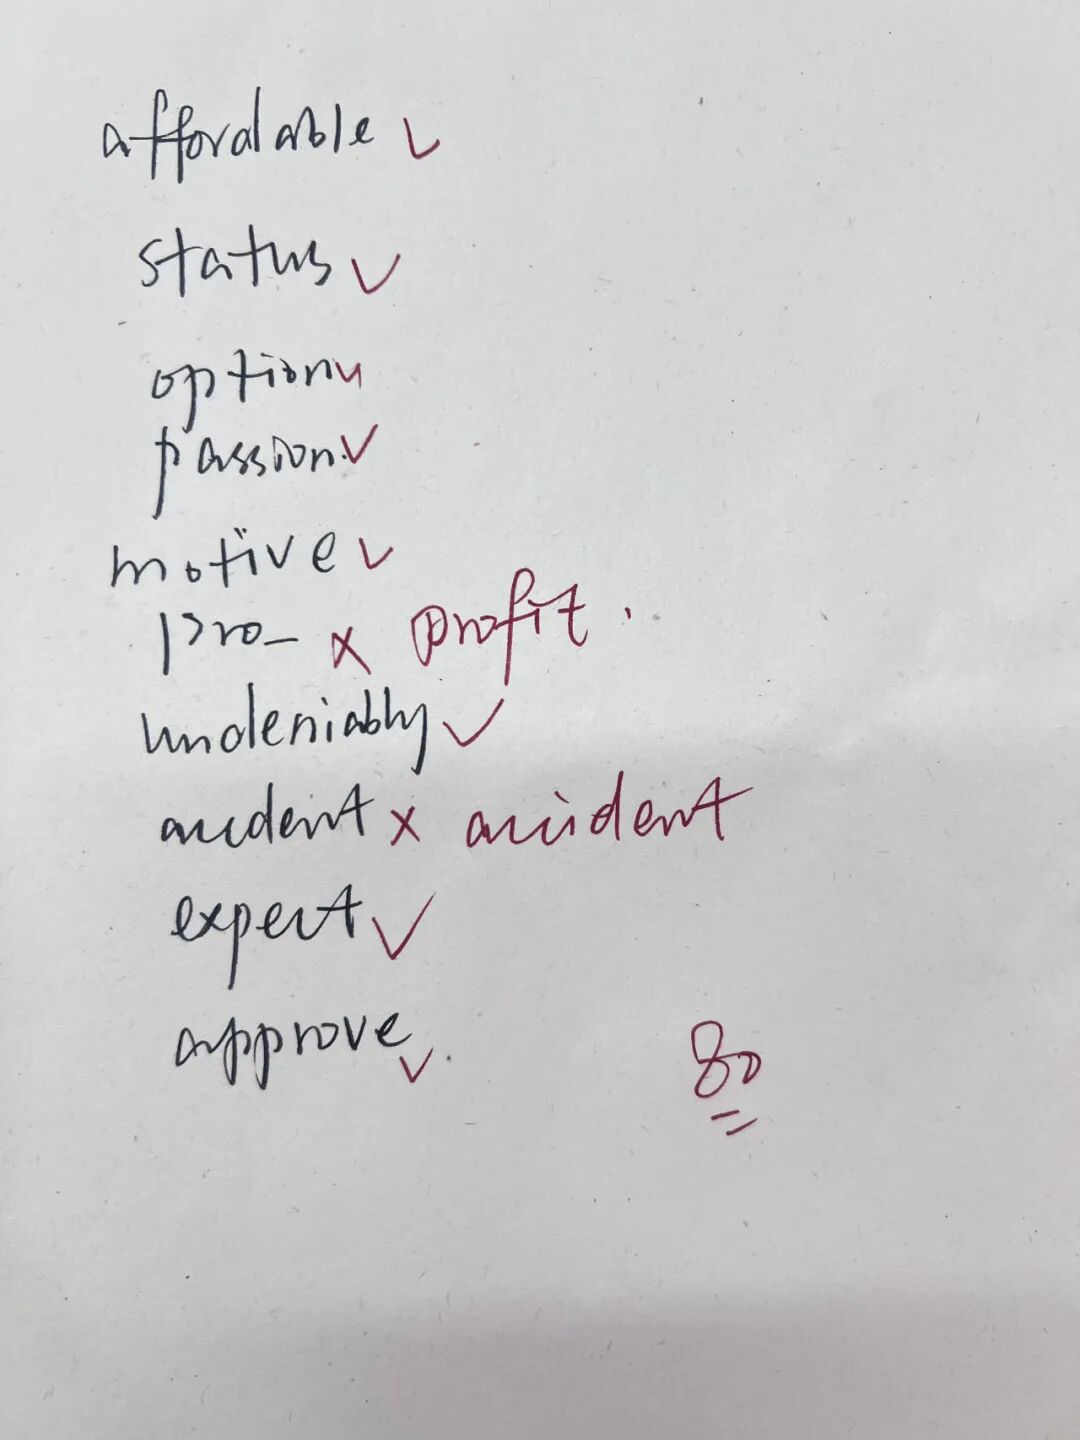 affordable ✓
status ✓
option ✓
passion. ✓
motive ✓
pro_ × profit.
undeniably ✓
accdent × accident
expert ✓
approve ✓.
80